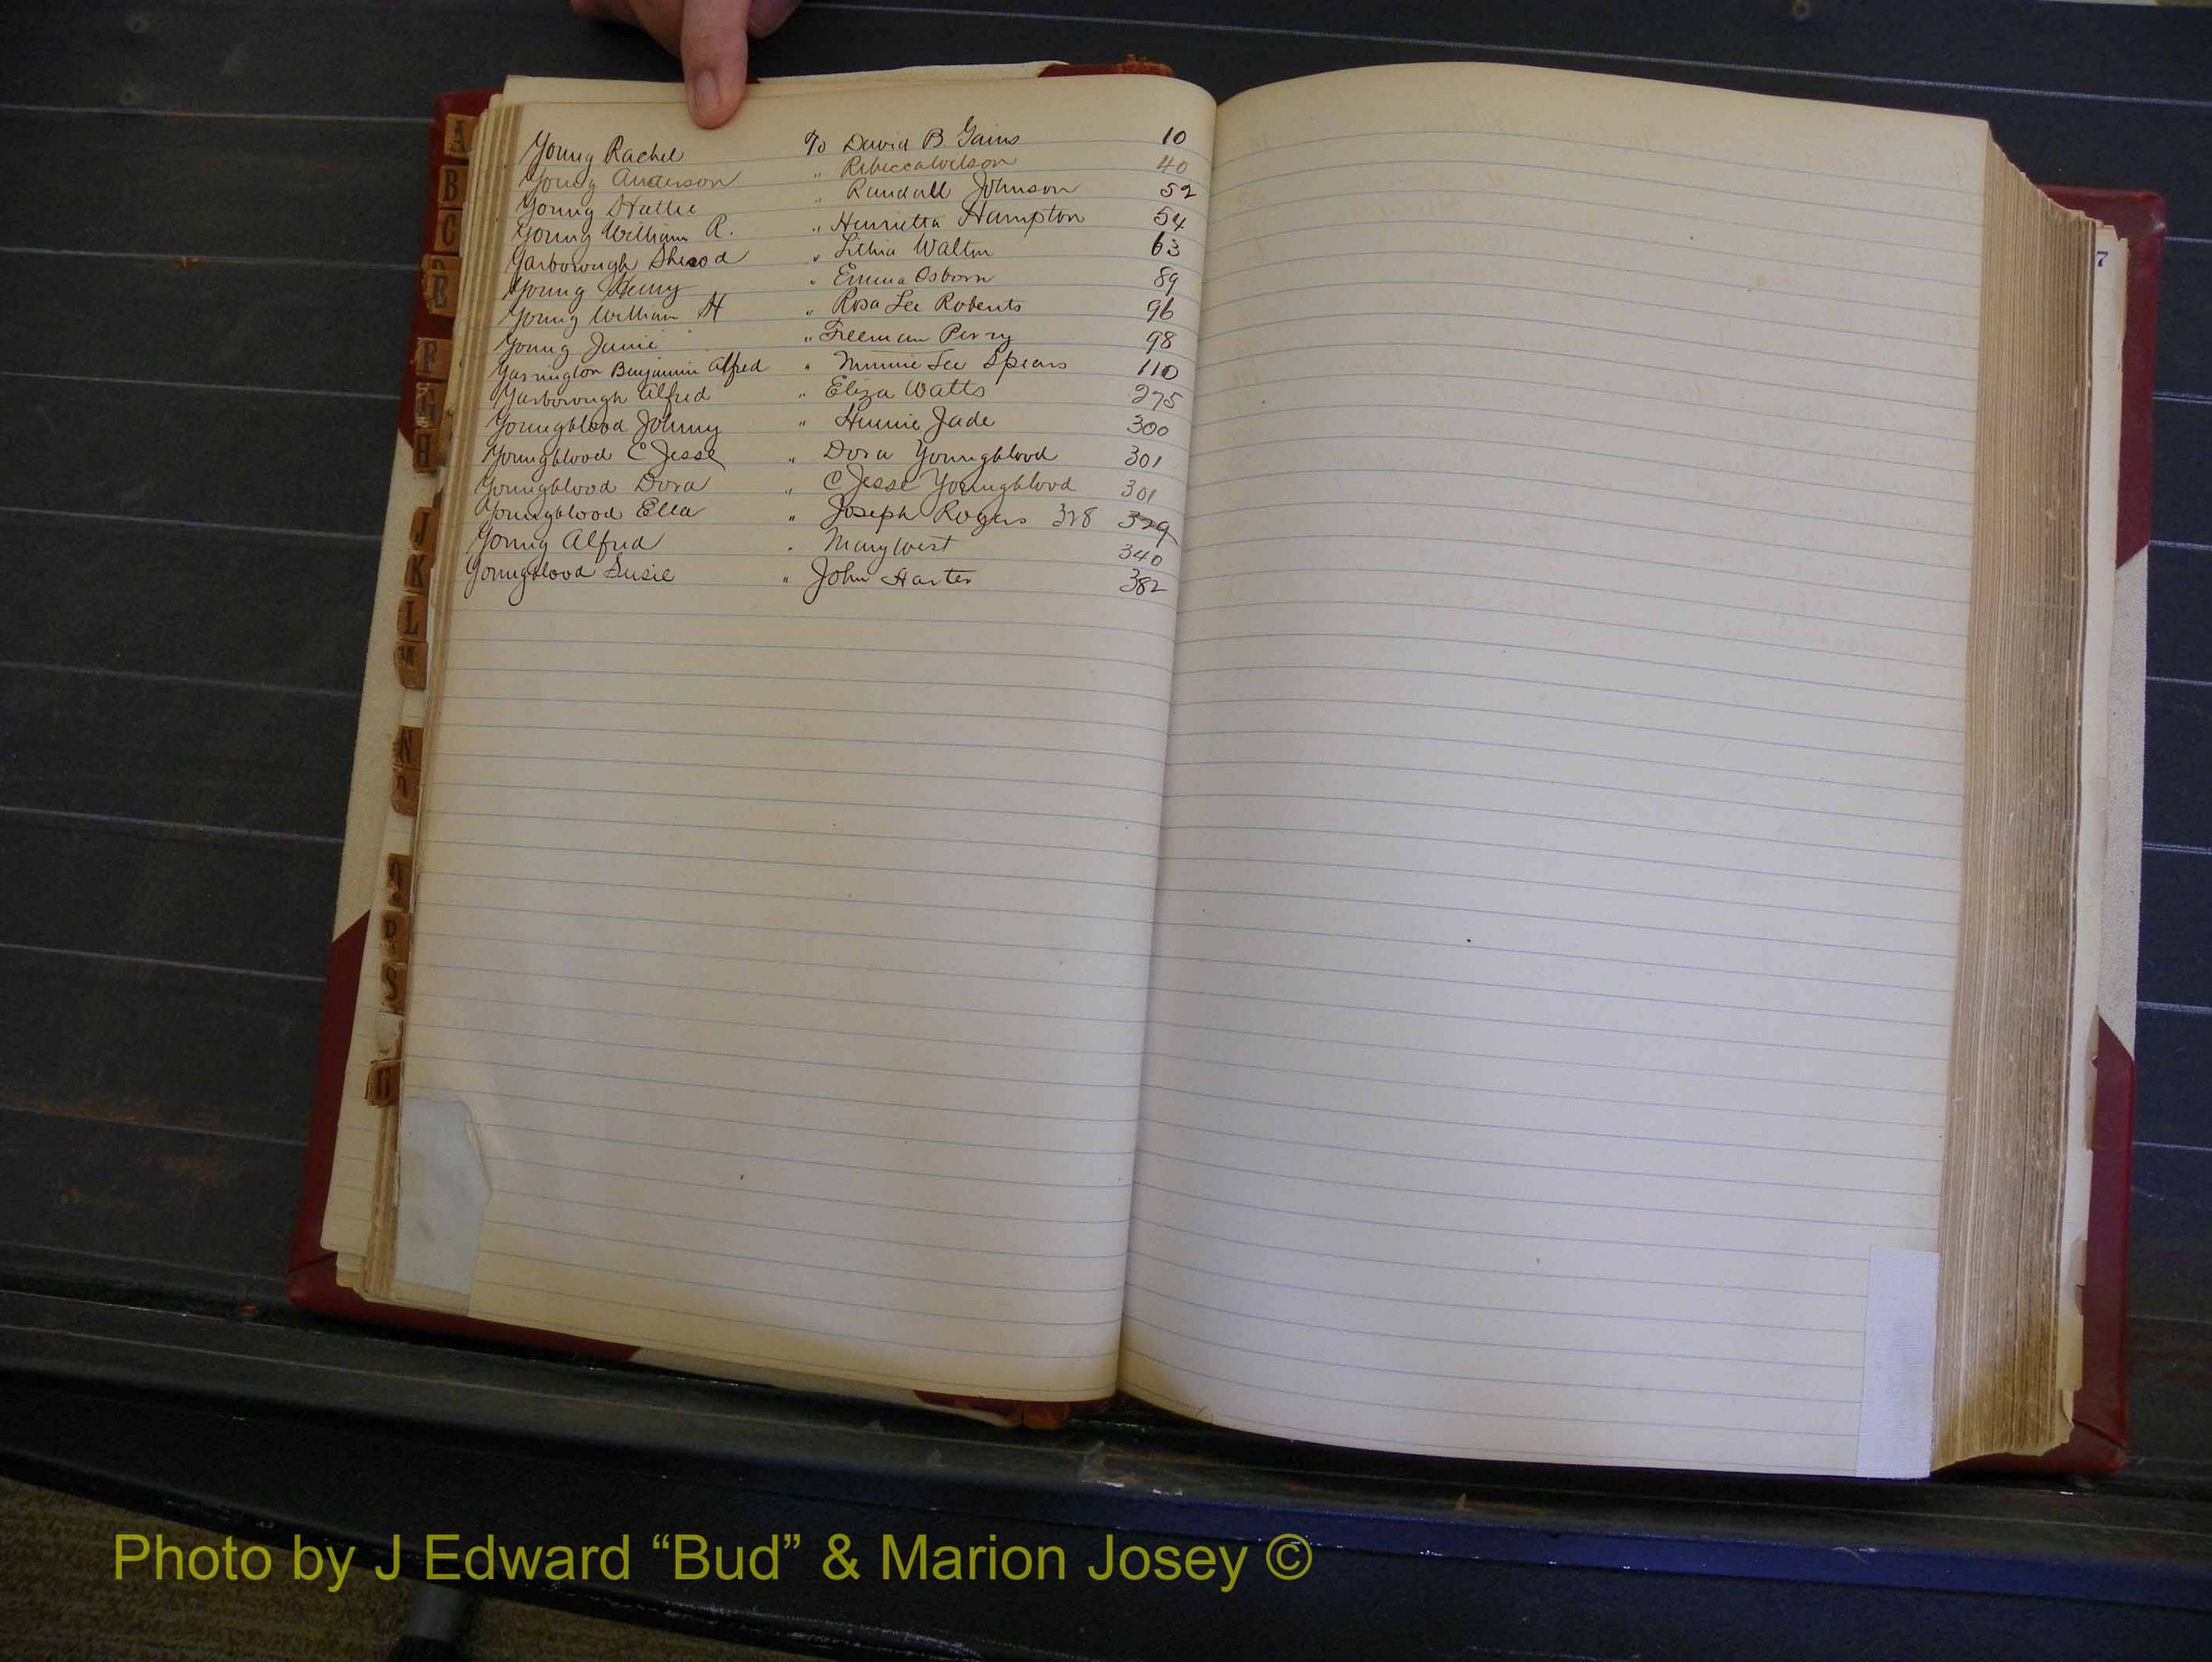 Young Rachel To David B. Gains 10
Young Anderson " Rebecca Wilson 40
Young Hattie " Randall Johnson 52
Young William R. " Henrietta Hampton 54
Yarborough Sherod " Lithia Walton 63
Young Henry " Emma Osborn 89
Young William H " Rosa Lee Roberts 96
Young Janie " Freeman Perry 98
Yarrington Benjamin Alfred " Minnie Lee Spears 110
Yarborough Alfred " Eliza Watts 275
Youngblood Johnny " Jade 300
Youngblood C Jesse " Dora Youngblood 301
Youngblood Dora " C Jesse Youngblood 301
Youngblood Ella " Joseph Rogers 328 329
Young Alfred " Mary West 340
Youngblood Susie " John Harter 382
A
B
C
E
F
G
H
J
K
L
M
N
O
Q
R
S
U
7
Photo by J Edward “Bud” & Marion Josey ©